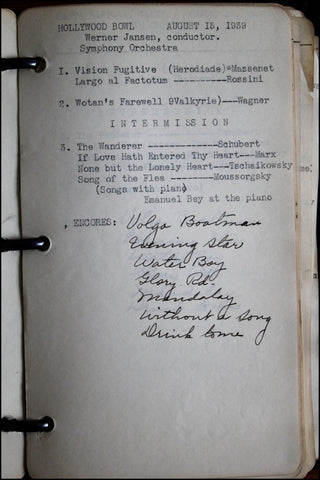 HOLLYWOOD BOWL AUGUST 15, 1939
Werner Jansen, conductor.
Symphony Orchestra
I. Vision Fugitive (Herodiade)=Massenet
Largo al Factotum ----------Rossini
2. Wotan's Farewell 9Valkyrie)---Wagner
I N T E R M I S S I O N
3. The Wanderer -------------Schubert
If Love Hath Entered Thy Heart---Marx
None but the Lonely Heart---Tschaikowsky
Song of the Flea --------Moussorgsky
(Songs with piano)
Emanuel Bey at the piano
, ENCORES: Volga Boatman
Evening Star
Water Boy
Glory Rd.
Mandalay
Without a Song
Drink